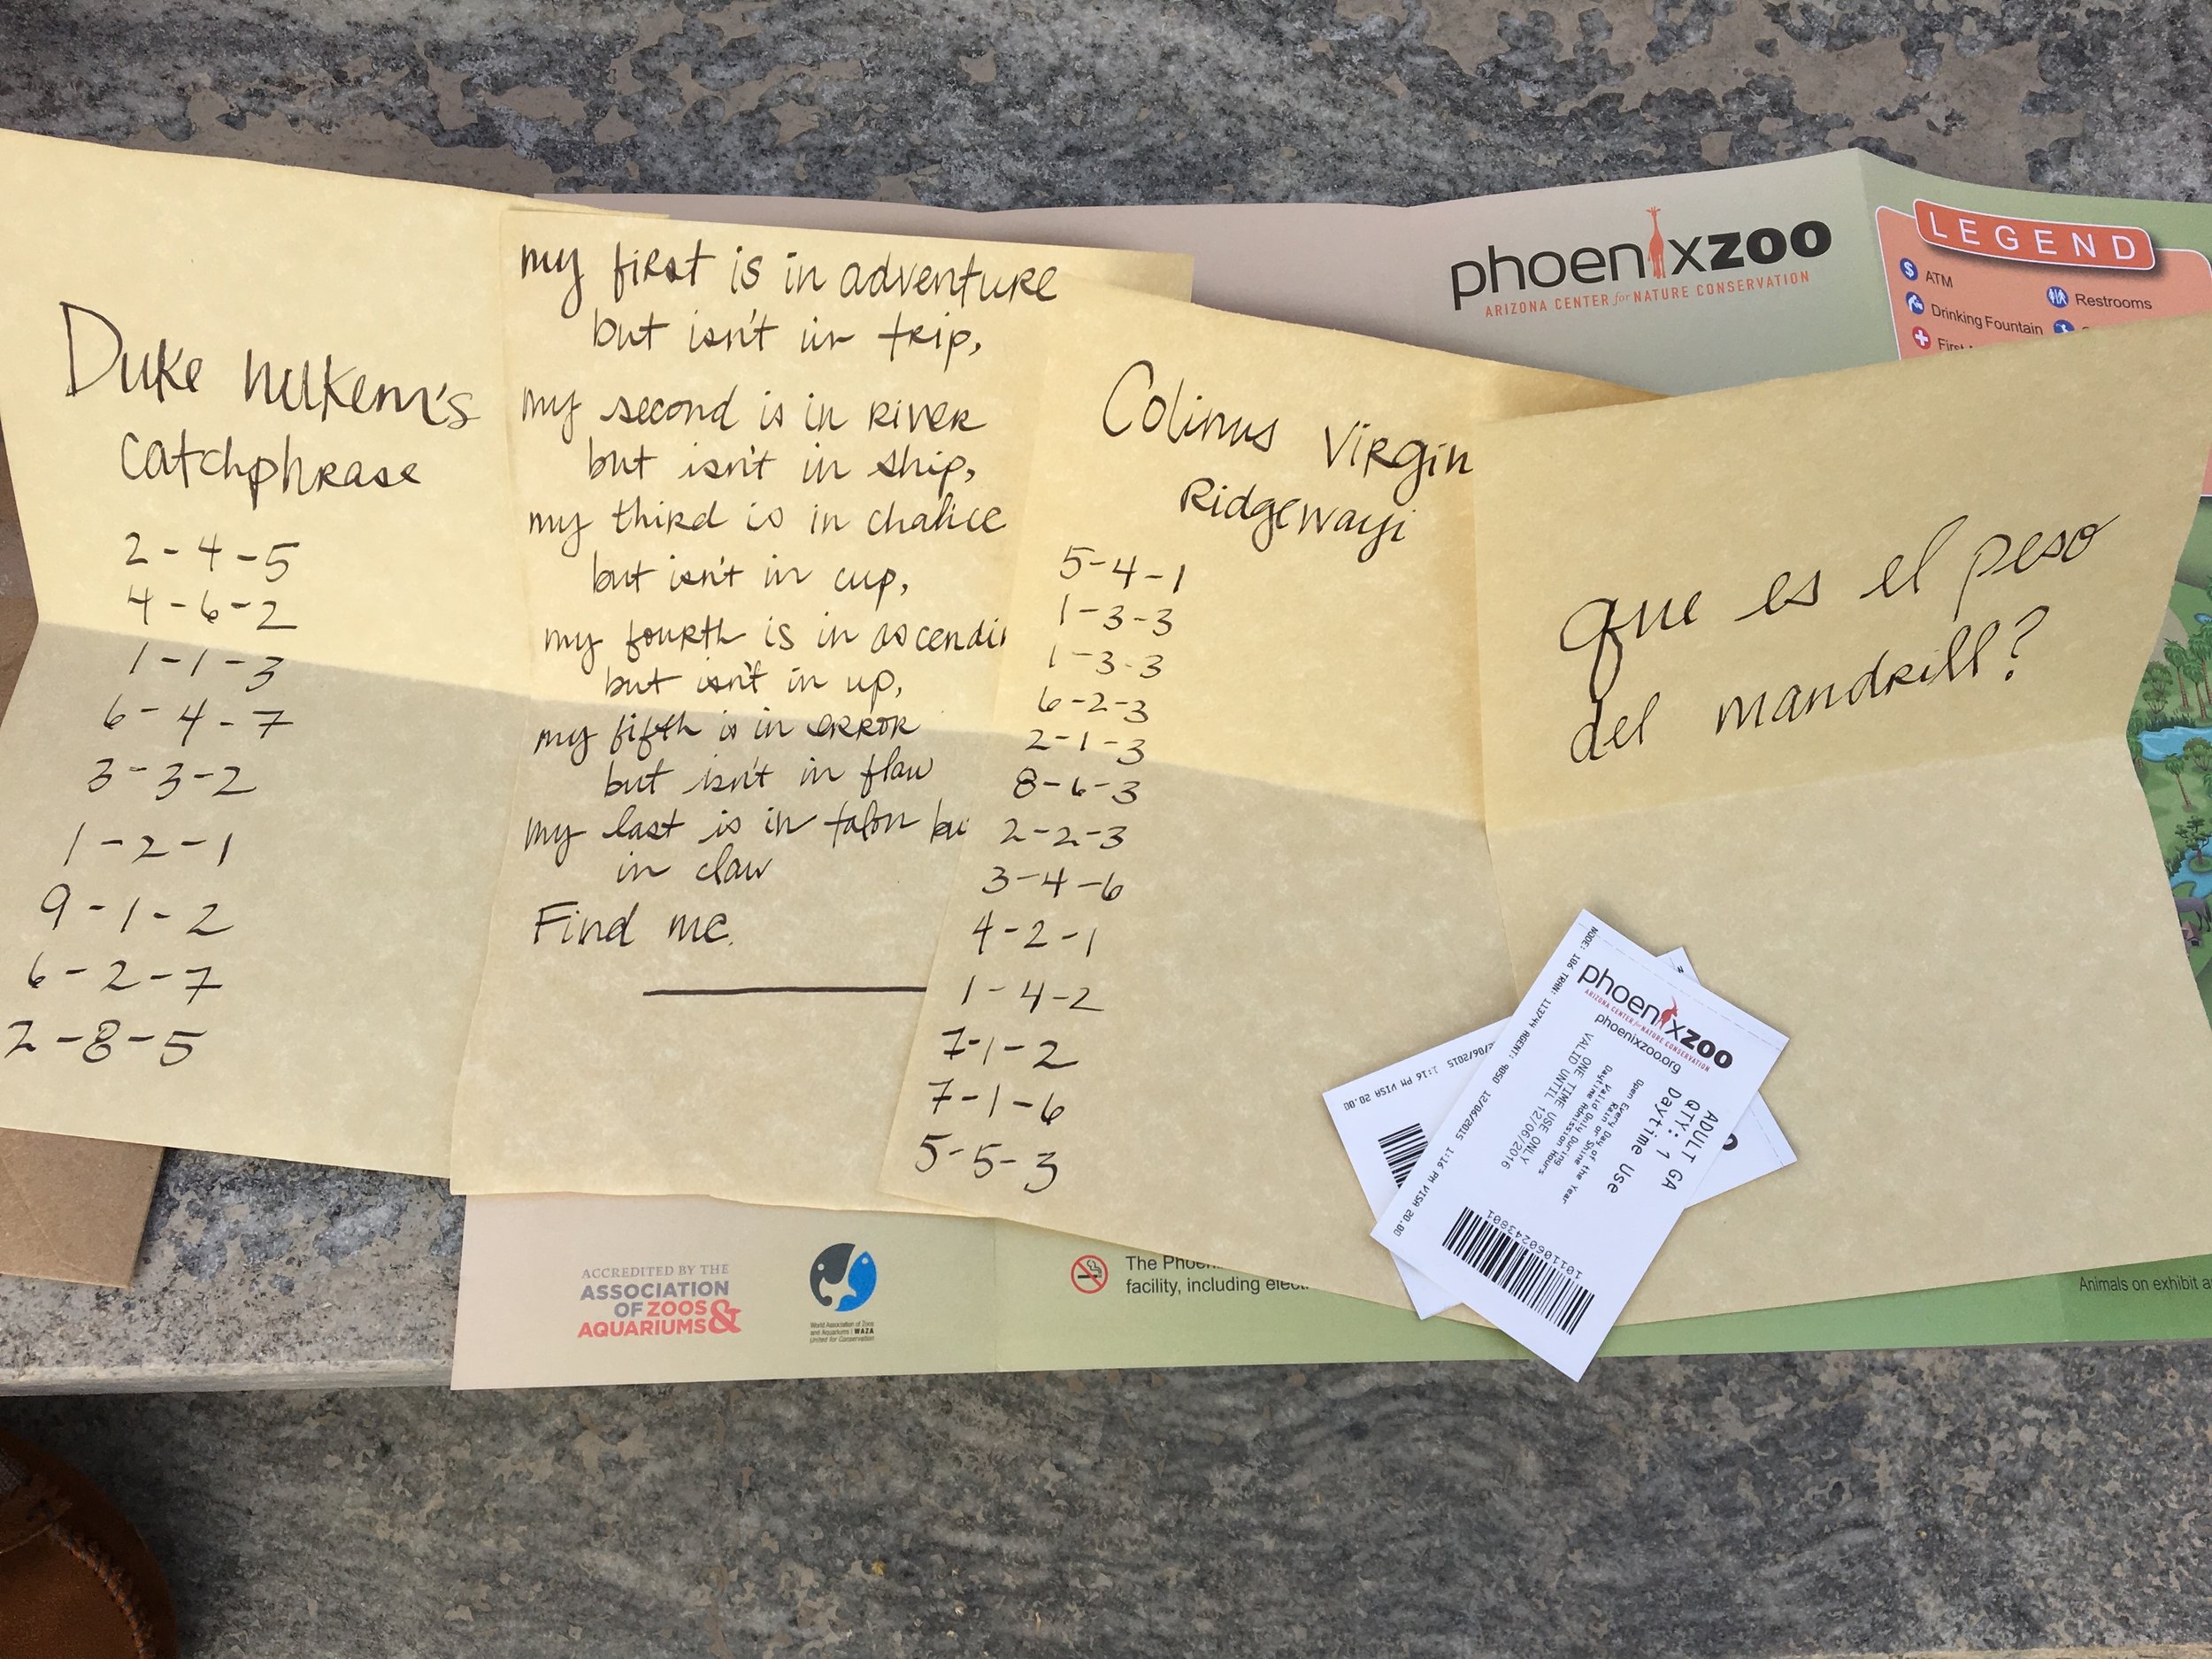 Duke Nukem's
catchphrase
2-4-5
4-6-2
1-1-3
6-4-7
3-3-2
1-2-1
9-1-2
6-2-7
2-8-5
my first is in adventure
but isn't in trip,
my second is in river
but isn't in ship,
my third is in chalice
but isn't in cup,
my fourth is in ascendin
but isn't in up,
my fifth is in error
but isn't in flaw
my last is in talon bu
in claw
Find me.
Colinus Virgin
Ridgewayi
5-4-1
1-3-3
1-3-3
6-2-3
2-1-3
8-6-3
2-2-3
3-4-6
4-2-1
1-4-2
7-1-2
7-1-6
5-5-3
que es el peso
del mandrill?
phoenixzoo
ARIZONA CENTER for NATURE CONSERVATION
LEGEND
$ ATM
Restrooms
Drinking Fountain
First
ACCREDITED BY THE
ASSOCIATION
OF ZOOS
AQUARIUMS &
World Association of Zoos
and Aquariums | WAZA
United for Conservation
The Phoen
facility, including elect
Animals on exhibit a
NODE: 106 TRAN: 113744 AGENT: 9050 12/06/2015 1:16 PM VISA 20.00
phoenixzoo
ARIZONA CENTER for NATURE CONSERVATION
phoenixzoo.org
ADULT GA
QTY: 1
Daytime Use
Open Every Day of the Year
Rain or Shine
Valid Only During
Daytime Admission Hours
ONE TIME USE ONLY
VALID UNTIL 12/06/2016
10111060243801
12/06/2015 1:16 PM VISA 20.00